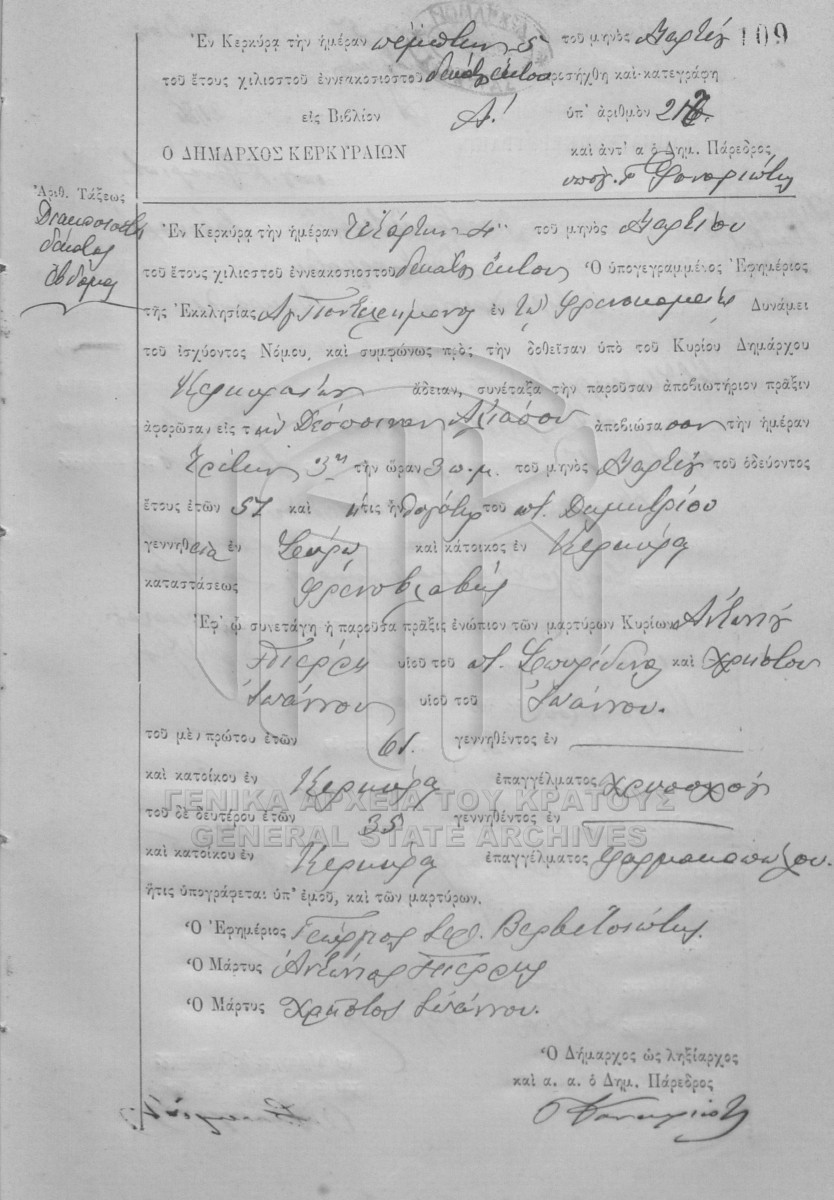 109
Ἐν Κερκύρᾳ τὴν ἡμέραν πέμπτην 5 τοῦ μηνὸς Μαρτίου
τοῦ ἔτους χιλιοστοῦ ἐννεακοσιοστοῦ δεκάτου ἕκτου προσήχθη καὶ κατεγράφη
εἰς Βιβλίον Α! ὑπ' ἀριθμὸν 217.
Ὁ ΔΗΜΑΡΧΟΣ ΚΕΡΚΥΡΑΙΩΝ καὶ ἀντ' α ὁ Δημ. Πάρεδρος
Ἀριθ. Τάξεως
Διακοσιοστὴ
δεκάτη
ἑβδόμη
Ἐν Κερκύρᾳ τὴν ἡμέραν Τετάρτην 4 τοῦ μηνὸς Μαρτίου
τοῦ ἔτους χιλιοστοῦ ἐννεακοσιοστοῦ δεκάτου ἕκτου Ὁ ὑπογεγραμμένος Ἐφημέριος
τῆς Ἐκκλησίας Ἁγ Παντελεήμονος ἐν τῷ Φρενοκομείῳ Δυνάμει
τοῦ ἰσχύοντος Νόμου, καὶ συμφώνως πρὸς τὴν δοθεῖσαν ὑπὸ τοῦ Κυρίου Δημάρχου
Κερκυραίων ἄδειαν, συνέταξα τὴν παροῦσαν ἀποβιωτήριον πρᾶξιν
ἀφορῶσαν εἰς τὴν Δέσποιναν ἀποβιώσασαν τὴν ἡμέραν
Τρίτην 3ην τὴν ὥραν 3 π.μ. τοῦ μηνὸς Μαρτίου τοῦ ὁδεύοντος
ἔτους ἐτῶν 57 καὶ ἥτις ἦν θυγάτηρ τοῦ ποτ. Δημητρίου
γεννηθεῖσα ἐν Σύρῳ καὶ κάτοικος ἐν Κερκύρᾳ
καταστάσεως φρενοβλαβής
Ἐφ' ᾧ συνετάγη ἡ παροῦσα πρᾶξις ἐνώπιον τῶν μαρτύρων Κυρίων Ἀντωνίου
Πιέρρη υἱοῦ τοῦ ποτ. Σπυρίδωνος καὶ Χρήστου
Ἰωάννου υἱοῦ τοῦ Ἰωάννου.
τοῦ μὲν πρώτου ἐτῶν 61. γεννηθέντος ἐν
καὶ κατοίκου ἐν Κερκύρᾳ ἐπαγγέλματος χρυσοχόου
τοῦ δὲ δευτέρου ἐτῶν 35 γεννηθέντος ἐν
καὶ κατοίκου ἐν Κερκύρᾳ ἐπαγγέλματος φαρμακοποιοῦ.
ἥτις ὑπογράφεται ὑπ' ἐμοῦ, καὶ τῶν μαρτύρων.
Ὁ Ἐφημέριος Γεώργιος Ἱερ. Βερβιτσιώτης
Ὁ Μάρτυς Ἀντώνιος Πιέρρης
Ὁ Μάρτυς Χρῆστος Ἰωάννου.
Ὁ Δήμαρχος ὡς ληξίαρχος
καὶ α. α. ὁ Δημ. Πάρεδρος
ΓΕΝΙΚΑ ΑΡΧΕΙΑ ΤΟΥ ΚΡΑΤΟΥΣ
GENERAL STATE ARCHIVES